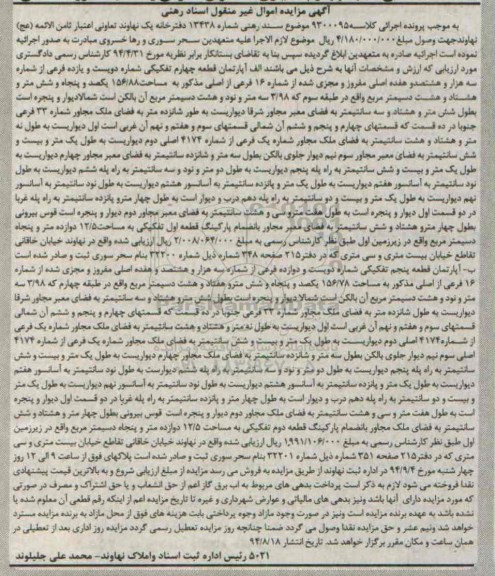 آگهی مزایده اموال غیر منقول اسناد رهنی
به موجب پرونده اجرائی کلاسه ۹۳۰۰۰۹۵ موضوع سند رهنی شماره ۱۳۴۳۸ دفترخانه یک نهاوند تعاونی اعتبار ثامن الائمه (عج)
نهاوند جهت وصول مبلغ ۴/۱۸۰/۰۰۰/۰۰۰ ریال موضوع لازم الاجرا علیه متعهدین سحر سوری و رها خسروی مبادرت به صدور اجرائیه
نموده است اجرائیه صادره به متعهدین ابلاغ گردیده سپس بنا به تقاضای بستانکار برابر نظریه مورخ ۹۴/۴/۳۱ کارشناس رسمی دادگستری
مورد ارزیابی که ارزش و مشخصات آنها به شرح ذیل می باشند الف آپارتمان قطعه چهارم تفکیکی شماره دویست و یازده فرعی از شماره
سه هزار و هشتصد و هفده اصلی مفروز و مجزی شده از شماره ۱۶ فرعی از اصلی مذکور به مساحت ۱۵۶/۸۸ یکصد و پنجاه و شش متر و
هشتاد و هشت دسیمتر مربع واقع در طبقه سوم که ۳/۹۸ سه متر و نود و هشت دسیمتر مربع آن بالکن است شمالا دیوار و پنجره است
بطول شش متر و هشتاد و سه سانتیمتر به فضای معبر مجاور شرقا دیواریست به طور شانزده متر به فضای ملک مجاور شماره ۳۳ فرعی
جنوبا در ده قسمت که قسمتهای چهارم و پنجم و ششم آن شمالی قسمتهای سوم و هفتم و نهم آن غربی است اول دیواریست به طول نه
متر و هشتاد و هشت سانتیمتر به فضای ملک مجاور شماره یک فرعی از شماره ۴۱۷۴ اصلی دوم دیواریست به طول یک متر و بیست و
شش سانتیمتر به فضای معبر مجاور سوم نیم دیوار جلوی بالکن بطول سه متر و شانزده سانتیمتر به فضای معبر مجاور چهارم دیواریست به
طول یک متر و بیست و شش سانتیمتر به راه پله پنجم دیواریست به طول دو متر و نود و سه سانتیمتر به راه پله ششم دیواریست به طول
نود سانتیمتر به آسانسور هفتم دیواریست به طول یک متر و پانزده سانتیمتر به آسانسور هشتم دیواریست به طول نود سانتیمتر به آسانسور
نهم دیواریست به طول یک متر و بیست و دو سانتیمتر به راه پله دهم درب و دیوار است به طول چهار مترو پانزده سانتیمتر به راه پله غربا
در دو قسمت اول دیوار و پنجره است به طول هفت مترو سی و هشت سانتیمتر به فضای معبر مجاور دوم دیوار و پنجره است قوس بیرونی
بطول چهار مترو هشتاد و شش سانتیمتر به فضای معبر مجاور بانضمام پارکینگ قطعه اول تفکیکی به مساحت ۱۲/۵ دوازده متر و پنجاه
دسیمتر مربع واقع در زیرزمین اول طبق نظر کارشناس رسمی به مبلغ ۲/۰۰۸/۰۶۴/۰۰۰ ریال ارزیابی شده واقع در نهاوند خیابان خاقانی
تقاطع خیابان بیست متری و سی متری که در دفتر ۲۱۵ صفحه ۳۴۸ شماره ذیل شماره ۳۲۲۰۰ بنام سحر سوری ثبت و صادر شده است
ب- آپارتمان قطعه پنجم تفکیکی شماره دویست و دوازده فرعی از شماره سه هزار و هشتصد و هفده اصلی مفروز و مجزی شده از شماره
۱۶ فرعی از اصلی مذکور به مساحت ۱۵۶/۷۸ یکصد و پنجاه و شش مترو هفتاد و هشت دسیمتر مربع واقع در طبقه چهارم که ۳/۹۸ سه
متر و نود و هشت دسیمتر مربع آن بالکن است شمالا دیوار و پنجره است بطول شش متر و هشتاد و سه سانتیمتر به فضای معبر مجاور شرقا
دیواریست به طول شانزده متر به فضای ملک مجاور شماره ۳۳ فرعی جنوبا در ده قسمت که قسمتهای چهارم و پنجم و ششم آن شمالی
قسمتهای سوم و هفتم و نهم آن غربی است اول دیواریست به طول نه متر و هشتاد و هشت سانتیمتر به فضای ملک مجاور شماره یک فرعی
از شماره ۴۱۷۴ اصلی دوم دیواریست به طول یک متر و بیست و شش سانتیمتر به فضای ملک مجاور شماره یک فرعی از شماره ۴۱۷۴
اصلی سوم نیم دیوار جلوی بالکن بطول سه متر و شانزده سانتیمتر به فضای ملک مجاور چهارم دیواریست به طول یک متر و بیست و شش
سانتیمتر به راه پله پنجم دیواریست به طول دو متر و نود و سه سانتیمتر به راه پله ششم دیواریست به طول نود سانتیمتر به آسانسور هفتم
دیواریست به طول یک متر و پانزده سانتیمتر به آسانسور هشتم دیواریست به طول نود سانتیمتر به آسانسور نهم دیواریست به طول یک متر
و بیست و دو سانتیمتر به راه پله دهم درب و دیوار است به طول چهار متر و پانزده سانتیمتر به راه پله غربا در دو قسمت اول دیوار و پنجره
است به طول هفت متر و سی و هشت سانتیمتر به فضای ملک مجاور دوم دیوار و پنجره است قوس بیرونی بطول چهار متر و هشتاد و شش
سانتیمتر به فضای ملک مجاور بانضمام پارکینگ قطعه دوم تفکیکی به مساحت ۱۲/۵ دوازده متر و پنجاه دسیمتر مربع واقع در زیرزمین
اول طبق نظر کارشناس رسمی به مبلغ ۱۹۹۱/۱۰۶/۰۰۰ ریال ارزیابی شده واقع در نهاوند خیابان خاقانی تقاطع خیابان بیست متری و سی
متری که در دفتر ۲۱۵ صفحه ۳۵۱ شماره ذیل شماره ۳۲۲۰۱ بنام سحر سوری ثبت و صادر شده است پلاکهای فوق از ساعت ۹ الی ۱۲ روز
چهار شنبه مورخ ۹۴/۹/۴ در اداره ثبت نهاوند از طریق مزایده به فروش می رسد مزایده از مبلغ ارزیابی شروع و به بالاترین قیمت پیشنهادی
نقدا فروخته می شود لازم به ذکر است پرداخت بدهی های مربوط به آب برق گاز اعم از حق انشعاب و یا حق اشتراک و مصرف در صورتی
که مورد مزایده دارای آنها باشد ونیز بدهی های مالیاتی و عوارض شهرداری و غیره تا تاریخ مزایده اعم از اینکه رقم قطعی آن معلوم شده یا
نشده باشد به عهده برنده مزایده است ونیز در صورت وجود مازاد وجوه پرداختی بابت هزینه های فوق از محل مازاد به برنده مزایده مسترد
خواهد شد ونیم عشر و حق مزایده نقدا وصول می گردد ضمنا چنانچه روز مزایده تعطیل رسمی گردد مزایده روز اداری بعد از تعطیلی در
همان ساعت و مکان مقرر برگزار خواهد شد. تاریخ انتشار ۹۴/۸/۱۸
۵۰۲۱ رئیس اداره ثبت اسناد واملاک نهاوند- محمد علی جلیلوند